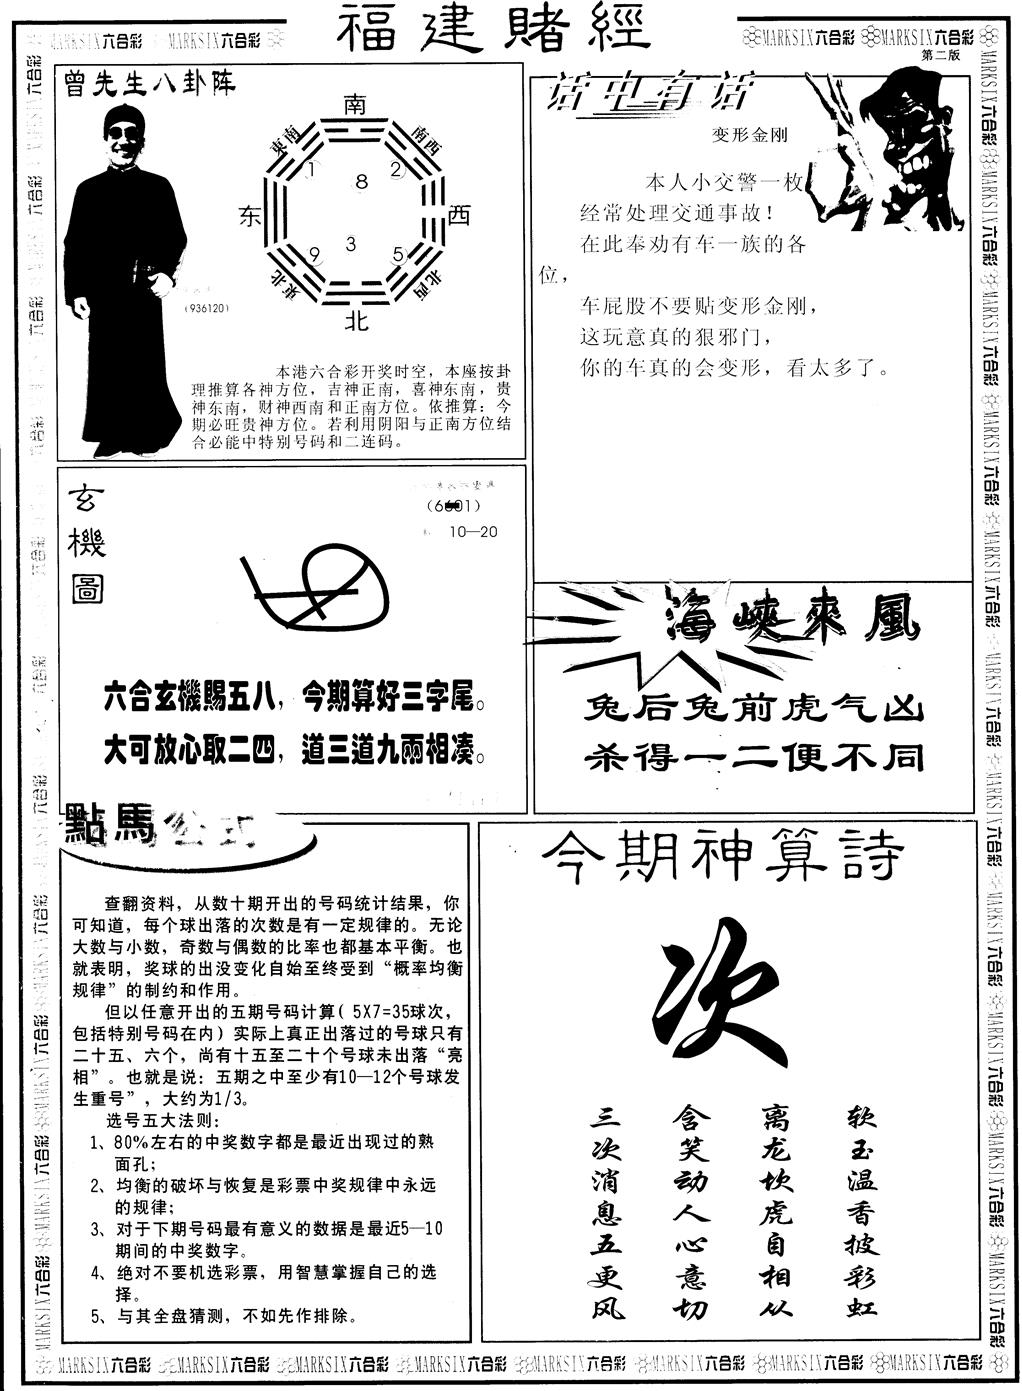 福建賭經
MARKSIX六合彩 MARKSIX六合彩
MARKSIX六合彩 MARKSIX六合彩
第二版
曾先生八卦阵
南
東南
南西
1
8
2
东
西
9
3
5
東北
北西
北
(936120)
本港六合彩开奖时空，本座按卦
理推算各神方位，吉神正南，喜神东南，贵
神东南，财神西南和正南方位。依推算：今
期必旺贵神方位。若利用阴阳与正南方位结
合必能中特别号码和二连码。
话中有话
变形金刚
本人小交警一枚
经常处理交通事故！
在此奉劝有车一族的各
位，
车屁股不要贴变形金刚，
这玩意真的狠邪门，
你的车真的会变形，看太多了。
玄機圖
10—20
六合玄機賜五八，今期算好三字尾。
大可放心取二四，道三道九兩相凑。
海峽來風
兔后兔前虎气凶
杀得一二便不同
點馬公式
查翻资料，从数十期开出的号码统计结果，你
可知道，每个球出落的次数是有一定规律的。无论
大数与小数，奇数与偶数的比率也都基本平衡。也
就表明，奖球的出没变化自始至终受到“概率均衡
规律”的制约和作用。
但以任意开出的五期号码计算（5X7=35球次，
包括特别号码在内）实际上真正出落过的号球只有
二十五、六个，尚有十五至二十个号球未出落“亮
相”。也就是说：五期之中至少有10—12个号球发
生重号”，大约为1/3。
选号五大法则：
1、80%左右的中奖数字都是最近出现过的熟
面孔；
2、均衡的破坏与恢复是彩票中奖规律中永远
的规律；
3、对于下期号码最有意义的数据是最近5—10
期间的中奖数字。
4、绝对不要机选彩票，用智慧掌握自己的选
择。
5、与其全盘猜测，不如先作排除。
今期神算詩
次
软玉温香披彩虹
离龙坎虎自相从
含笑动人心意切
三次消息五更风
MARKSIX六合彩 MARKSIX六合彩 MARKSIX六合彩 MARKSIX六合彩 MARKSIX六合彩 MARKSIX六合彩 MARKSIX六合彩 MARKSIX六合彩